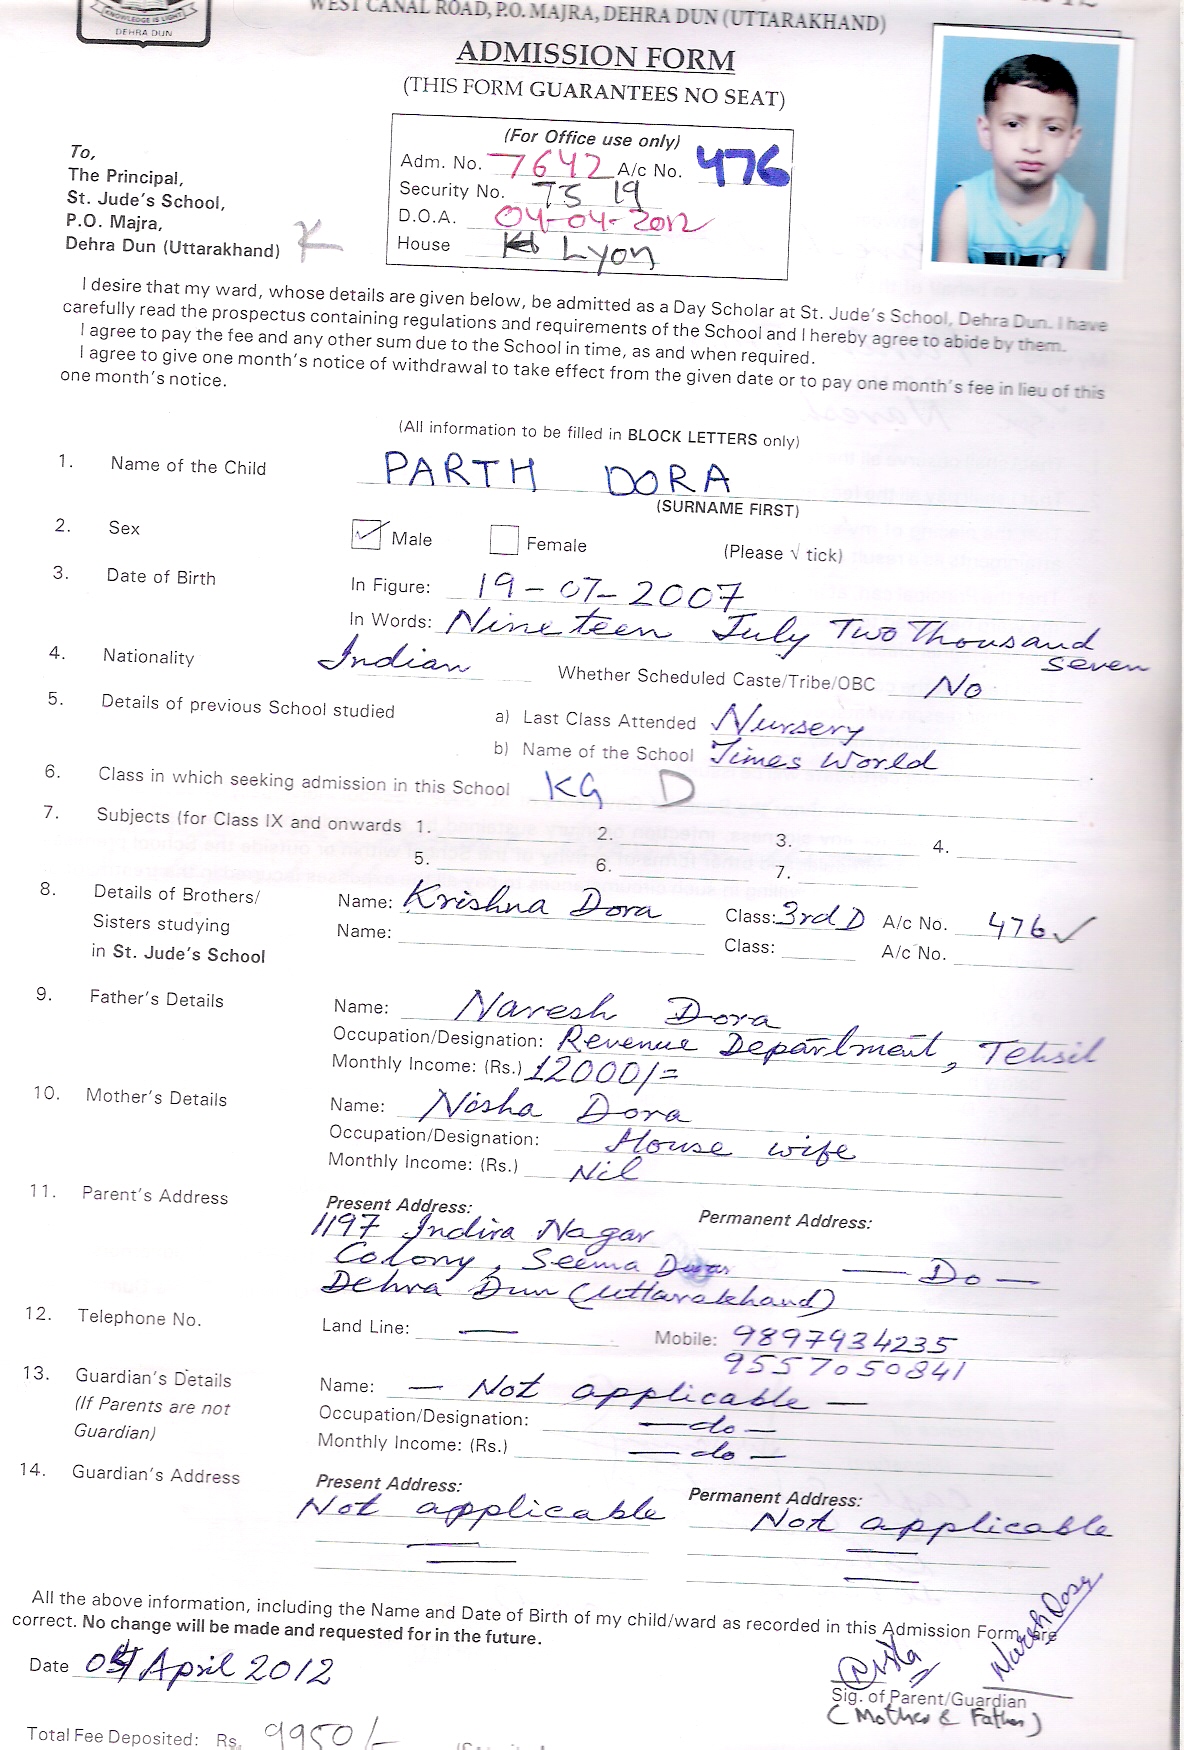 KNOWLEDGE IS LIGHT
DEHRA DUN
WEST CANAL ROAD, P.O. MAJRA, DEHRA DUN (UTTARAKHAND)
ADMISSION FORM
(THIS FORM GUARANTEES NO SEAT)
(For Office use only)
Adm. No. 7642 A/c No. 476
Security No. TS 19
D.O.A. 04-04-2012
House Lyon
To,
The Principal,
St. Jude's School,
P.O. Majra,
Dehra Dun (Uttarakhand) K
I desire that my ward, whose details are given below, be admitted as a Day Scholar at St. Jude's School, Dehra Dun. I have
carefully read the prospectus containing regulations and requirements of the School and I hereby agree to abide by them.
I agree to pay the fee and any other sum due to the School in time, as and when required.
I agree to give one month's notice of withdrawal to take effect from the given date or to pay one month's fee in lieu of this
one month's notice.
(All information to be filled in BLOCK LETTERS only)
1. Name of the Child PARTH DORA
(SURNAME FIRST)
2. Sex Male Female (Please √ tick)
3. Date of Birth In Figure: 19-07-2007
In Words: Nineteen July Two Thousand
seven
4. Nationality Indian Whether Scheduled Caste/Tribe/OBC No
5. Details of previous School studied a) Last Class Attended Nursery
b) Name of the School Times World
6. Class in which seeking admission in this School KG D
7. Subjects (for Class IX and onwards 1. 2. 3. 4.
5. 6. 7.
8. Details of Brothers/ Name: Krishna Dora Class: 3rd D A/c No. 476 ✓
Sisters studying Name: Class: A/c No.
in St. Jude's School
9. Father's Details Name: Naresh Dora
Occupation/Designation: Revenue Department, Tehsil
Monthly Income: (Rs.) 12000/=
10. Mother's Details Name: Nisha Dora
Occupation/Designation: House wife
Monthly Income: (Rs.) Nil
11. Parent's Address Present Address: Permanent Address:
1197 Indira Nagar
Colony, Seema Dwar — Do —
Dehra Dun (Uttarakhand)
12. Telephone No. Land Line: — Mobile: 9897934235
9557050841
13. Guardian's Details Name: — Not applicable —
(If Parents are not Occupation/Designation: — do —
Guardian) Monthly Income: (Rs.) — do —
14. Guardian's Address Present Address: Permanent Address:
Not applicable Not applicable
All the above information, including the Name and Date of Birth of my child/ward as recorded in this Admission Form, are
correct. No change will be made and requested for in the future.
Naresh Dora
Date 04 April 2012
Sig. of Parent/Guardian
(Mother & Father)
Total Fee Deposited: Rs. 9950/-